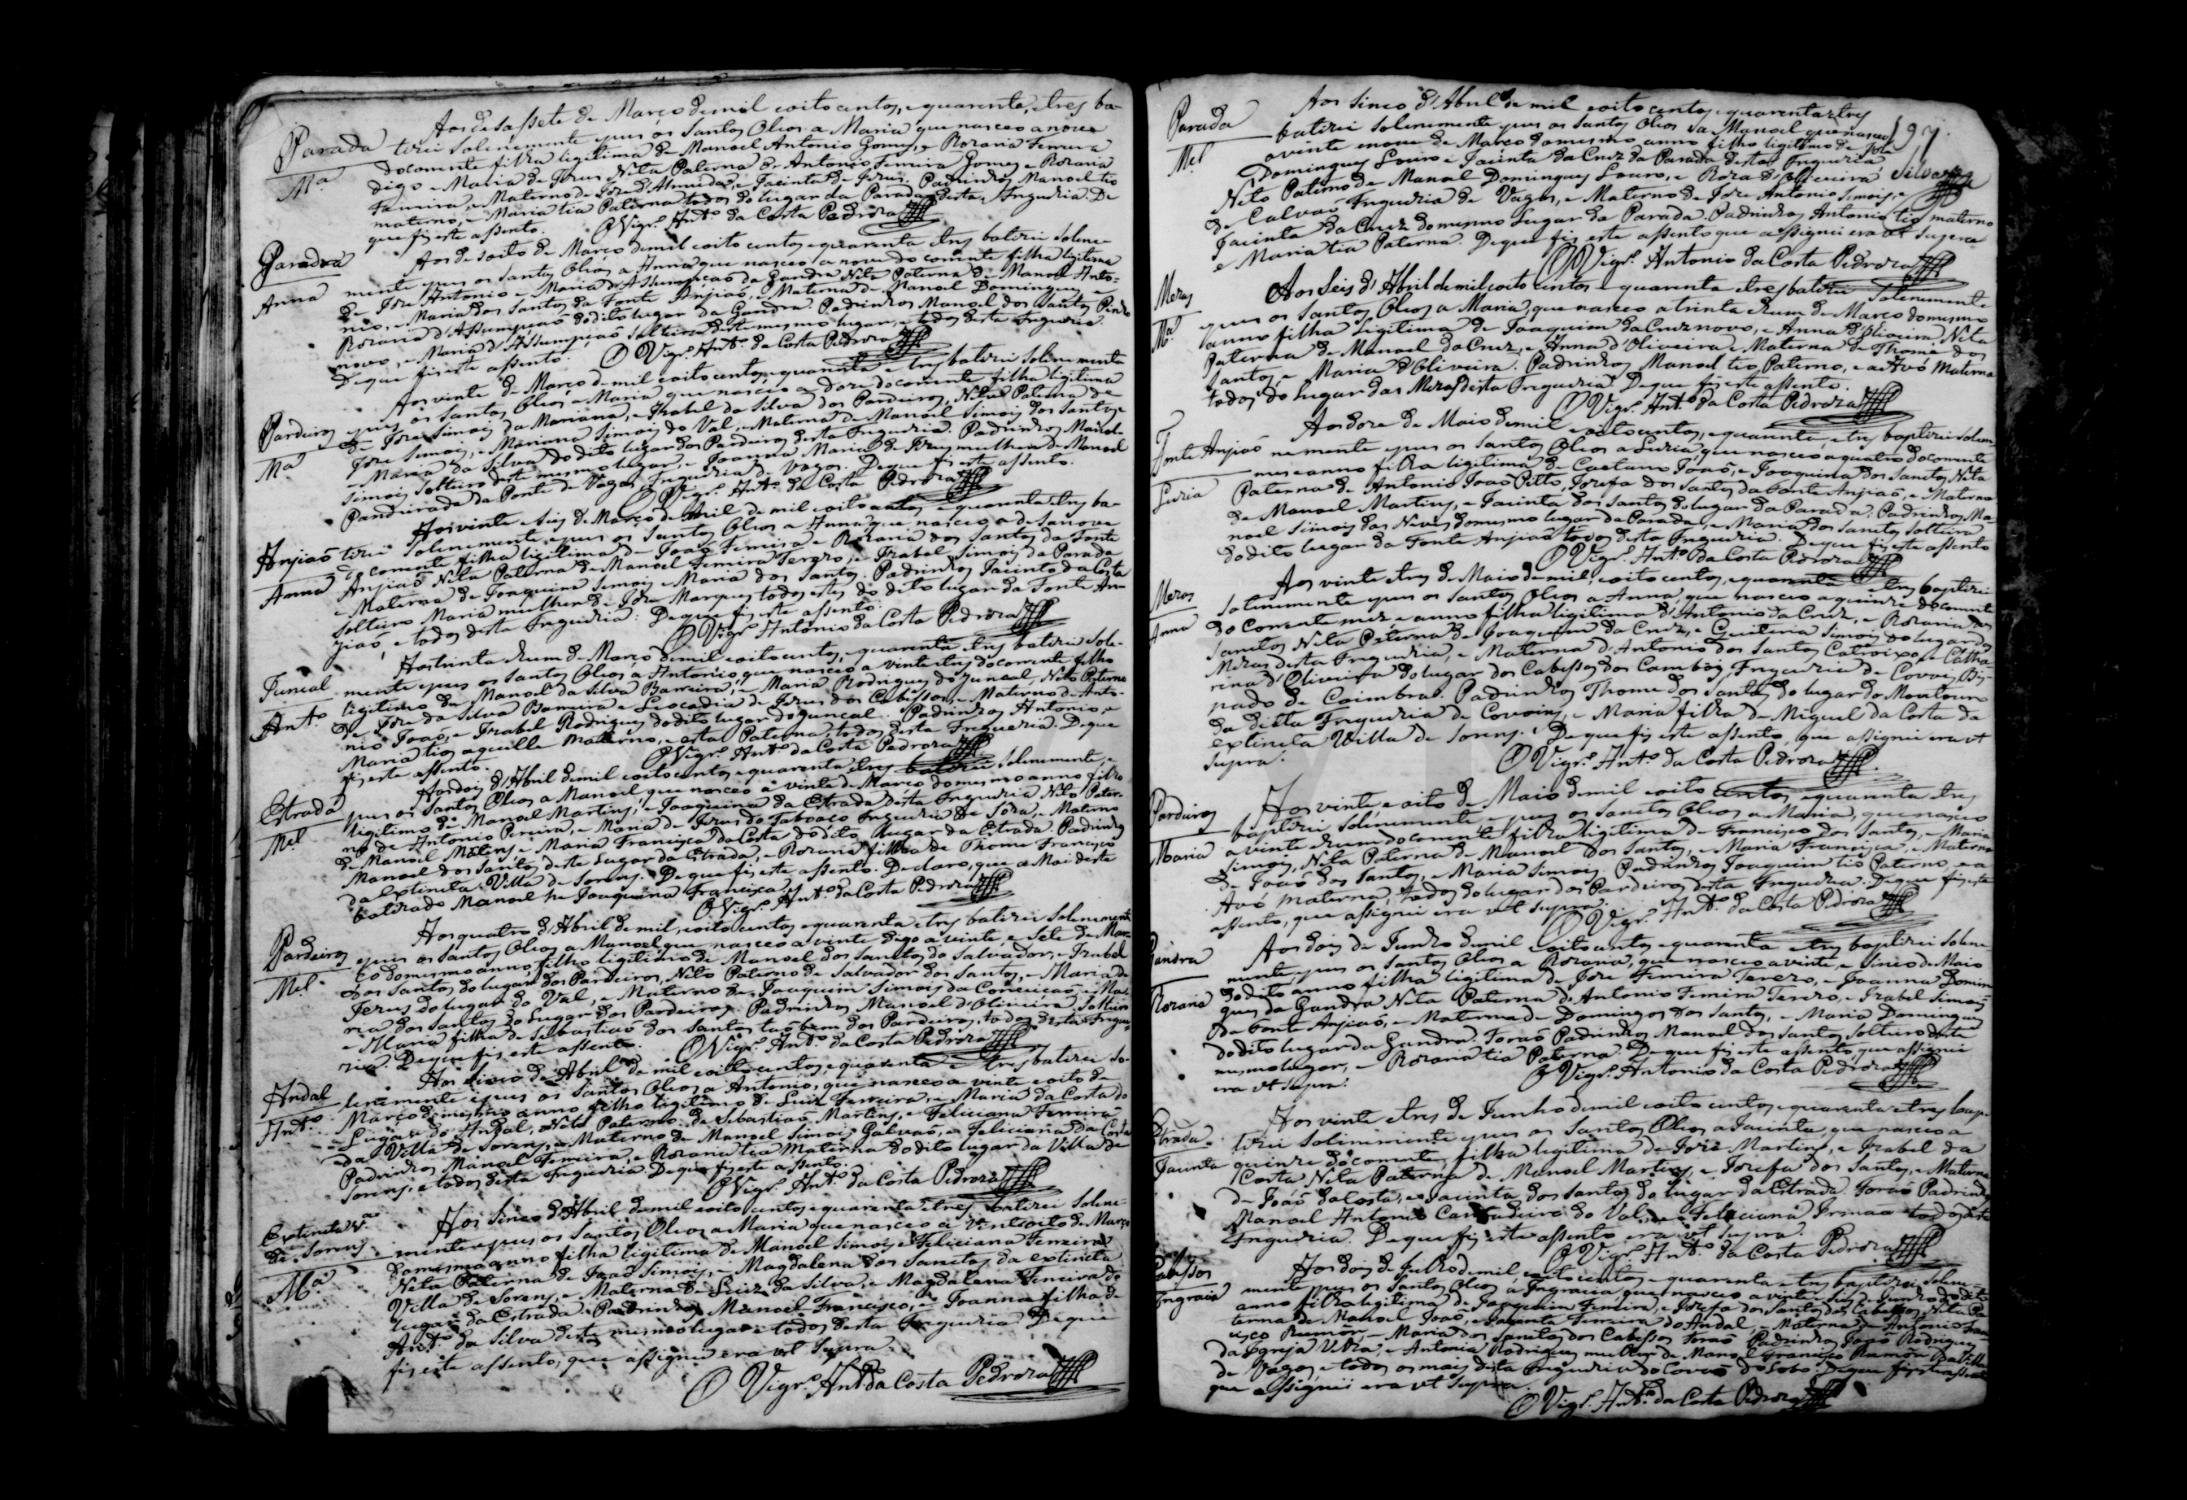 Aos desassete de Março de mil, e oito centos, e quarenta, e tres ba-
Parada tizei solenemente e pus os Santos Oleos a Maria que nasceo a nove
Ma do corrente filha legitima de Manoel Antonio Gomes, e Rozaria Ferreira
digo e Maria de Jezus Neta Paterna de Antonio Ferreira Gomes e Rozaria
Ferreira, e Materna de Joze d'Almeida, e Jacinta de Jezus. Padrinhos Manoel tio
materno, e Maria tia Paterna todos do lugar da Parada desta Freguezia. De
que fiz este assento. O Vigr.º Ant.º da Costa Pedroza
Gandra Aos desoito de Março de mil e oito centos e quarenta e tres batizei solene-
Anna mente e pus os Santos Oleos a Anna que nasceo a nove do corrente filha legitima
de Joze Antonio e Maria d'Assumpçaõ da Gandra Neta Paterna de Manoel Anto-
nio, e Maria dos Santos da Fonte Anjiaõ, e Materna de Manoel Domingues, e
Rozaria d'Assumpçaõ do dito lugar da Gandra. Padrinhos Manoel dos Santos
novo, e Maria d'Assumpçaõ solteira deste mesmo lugar, e todos desta Freguezia.
De que fiz este assento. O Vigr.º Ant.º da Costa Pedroza
Aos vinte de Março de mil e oito centos, e quarenta e tres batizei solenemente
Pardeiros e pus os Santos Oleos a Maria que nasceo a doze do corrente filha legitima
Ma de Joze Simois da Mariana, e Izabel da Silva dos Pardeiros, Neta Paterna de
Joze Simois, e Mariana Simois do Val, e Materna de Manoel Simois dos Santos,
e Maria da Silva do dito lugar dos Pardeiros desta Freguezia. Padrinhos Manoel
Simois solteiro deste mesmo lugar, e Joanna Maria de Jezus mulher de Manoel
Pandeirada da Ponte de Vagos, Freguezia de Vagos. De que fiz este assento.
O Vigr.º Ant.º da Costa Pedroza
Aos vinte e seis de Março de mil e oito centos e quarenta e tres ba-
Anjiaõ tizei solenemente e pus os Santos Oleos a Anna que nasceo a desanove
Anna do corrente filha legitima de Joaõ Ferreira e Rozaria dos Santos da Fonte
Anjiaõ Neta Paterna de Manoel Ferreira Terzro, e Izabel Simois da Parada
e Materna de Joaquim Simois e Maria dos Santos. Padrinhos Jacinto da Costa
solteiro Maria mulher de Joze Marques todos estes do dito lugar da Fonte An-
jiaõ, e todos desta Freguezia: De que fiz este assento.
O Vigr.º Antonio da Costa Pedroza
Aos trinta e hum de Março de mil e oito centos, e quarenta e tres batizei sole-
Juncal mente e pus os Santos Oleos a Antonio que nasceo a vinte e tres do corrente filho
Ant.º legitimo de Manoel da Silva Barreira, e Maria Rodrigues do Juncal, Neto Paterno
de Joze da Silva Barreira e Leocadia de Jezus dos Cabessos, e Materno de Anto-
nio Joaõ, e Izabel Rodrigues do dito lugar do Juncal. Padrinhos Antonio, e
Maria tios aquelle Materno, e esta Paterna, todos desta Freguezia. De que
fiz este assento. O Vigr.º Ant.º da Costa Pedroza
Aos dois d'Abril de mil e oito centos e quarenta e tres batizei solenemente, e
Estrada pus os Santos Oleos a Manoel que nasceo a vinte de Março do mesmo anno filho
Mel legitimo de Manoel Martins, e Joaquina da Estrada desta Freguezia Neto Pater-
no de Antonio Pereira, e Maria de Jezus do Taboaço Freguezia de Soza, e Materno
de Manoel Martins, e Maria Francisca da Costa do dito lugar da Estrada. Padrinhos
Manoel dos Santos deste lugar da Estrada, e Rozaria filha de Thome Francisco
da extincta Villa de Sorens. De que fiz este assento. Declaro, que a Mai deste
batizado Manoel he Joaquina Francisca.
O Vigr.º Ant.º da Costa Pedroza
Aos quatro d'Abril de mil, e oito centos e quarenta e tres batizei solenemente
Pardeiros e pus os Santos Oleos a Manoel que nasceo a vinte digo a vinte, e sete de Mar-
Mel ço do mesmo anno filho legitimo de Manoel dos Santos do Salvador, e Izabel
dos Santos do lugar dos Pardeiros, Neto Paterno de Salvador dos Santos, e Maria de
Jezus do lugar do Val, e Materno de Joaquim Simois da Conceicaõ, e Ma-
ria dos Santos do lugar dos Pardeiros. Padrinhos Manoel d'Oliveira solteiro
e Maria filha de Sebastiaõ dos Santos taõ bem dos Pardeiros, todos desta Fregue-
zia. De que fiz este assento. O Vigr.º Ant.º da Costa Pedroza
Aos sinco de Abril de mil e oito centos e quarenta e tres batizei so-
Andal lenemente e pus os Santos Oleos a Antonio, que nasceo a vinte e oito de
Ant.º Março do mesmo anno filho legitimo de Luis Ferreira, e Maria da Costa do
Lugar do Andal, Neto Paterno de Sebastiaõ Martins, e Feliciana Ferreira
da Villa de Sorens, e Materno de Manoel Simois Galvaõ, e Feliciana da Costa
Padrinhos Manoel Ferreira, e Rozaria tia Materna do dito lugar da Villa de
Sorens, e todos desta Freguezia. De que fiz este assento.
O Vigr.º Ant.º da Costa Pedroza
Extincta Va Aos sinco d'Abril de mil e oito centos e quarenta e tres batizei solene-
de Sorens mente e pus os Santos Oleos a Maria que nasceo a vinte oito de Março
Ma do mesmo anno filha legitima de Manoel Simois e Feliciana Ferreira
Neta Paterna de Joaõ Simois, e Magdalena dos Sanctos da extincta
Villa de Sorens, e Materna de Luiz da Silva, e Magdalena Ferreira do
lugar da Estrada. Padrinhos Manoel Francisco, e Joanna filha de
Ant.º da Silva deste mesmo lugar e todos desta Freguezia De que
fiz este assento, que assignei era ut supra.
O Vigr.º Ant.º da Costa Pedroza
Parada Aos sinco d'Abril de mil e oito centos e quarenta e tres
197.
batizei solenemente e pus os Santos Oleos a Manoel que nasceo
Mel a vinte nove de Março do mesmo anno filho legitimo de Joze
Domingues Louro e Jacinta da Cruz da Parada desta Freguezia Silveira
Neto Paterno de Manoel Domingues Louro, e Roza d'Oliveira
de Calvaõ Freguezia de Vagos, e Materno de Joze Antonio Simois, e
Jacinta da Cruz do mesmo lugar da Parada. Padrinhos Antonio tio materno
e Maria tia Paterna. De que fiz este assento que assignei era ut supra
O Vigr.º Antonio da Costa Pedroza
Mezas Aos seis d'Abril de mil e oito centos e quarenta e tres batizei solenemente
Ma e pus os Santos Oleos a Maria, que nasceo a trinta e hum de Março do mesmo
anno filha legitima de Joaquim da Cruz novo, e Anna d'Oliveira, Neta
Paterna de Manoel da Cruz, e Anna d'Oliveira e Materna de Thome dos
Santos, e Maria d'Oliveira. Padrinhos Manoel tio Paterno, e a Avó Materna
todos do lugar das Mezas desta Freguezia. De que fiz este assento.
O Vigr.º Ant.º da Costa Pedroza
Aos doze de Maio de mil e oito centos, e quarenta, e tres baptizei solem-
Fonte Anjiaõ nemente e pus os Santos Oleos a Luzia, que nasceo a quatro do corrente
Luzia mes e anno filha legitima de Caetano Joaõ, e Joaquina dos Santos, Neta
Paterna de Antonio Joaõ Petto, Jozefa dos Santos da Fonte Anjiaõ, e Materna
de Manoel Martins, e Jacinta dos Santos do lugar da Parada. Padrinhos Ma-
noel Simois das Neves do mesmo lugar da Parada, e Maria dos Santos solteira
do dito lugar da Fonte Anjiaõ todos desta Freguezia. De que fiz este assento
O Vigr.º Ant.º da Costa Pedroza
Mezas Aos vinte e tres de Maio de mil, e oito centos, e quarenta e tres baptizei
Anna solenemente e pus os Santos Oleos a Anna, que nasceo a quinze do corrente
do corrente mez e anno filha legitima d'Antonio da Cruz, e Rozaria dos
Santos Neta Paterna de Joaquim da Cruz, e Quiteria Simois do lugar das
Mezas desta Freguezia, e Materna d'Antonio dos Santos Catroixo, e Catha-
rina d'Oliveira do lugar dos Cabessos dos Camboẽs, Freguezia de Covoẽs Bis-
pado de Coimbra. Padrinhos Thome dos Santos do lugar do Montouro
da dicta Freguezia de Covoẽs, e Maria filha de Miguel da Costa da
extincta Villa de Sorens. De que fiz este assento, que assignei era ut
supra. O Vigr.º Ant.º da Costa Pedroza
Pardeiros Aos vinte e oito de Maio de mil e oito centos, e quarenta e tres
Maria baptizei solenemente e pus os Santos Oleos a Maria, que nasceo
a vinte e hum do corrente filha legitima de Francisco dos Santos, e Maria
Simois, Neta Paterna de Manoel dos Santos, e Maria Francisca, e Materna
de Joaõ dos Santos, e Maria Simois. Padrinhos Joaquim tio Paterno, e a
Avó Materna, todos do lugar dos Pardeiros desta Freguezia. De que fiz este
assento, que assignei era ut supra. O Vigr.º Ant.º da Costa Pedroza
Gandra Aos dois de Junho de mil e oito centos e quarenta e tres baptizei solene-
mente e pus os Santos Oleos a Rozaria, que nasceo a vinte, e sinco de Maio
Rozaria do dito anno filha legitima de Joze Ferreira Terzro, e Joanna Domin-
gues da Gandra Neta Paterna d'Antonio Ferreira Terzro, e Izabel Simois
da Fonte Anjiaõ, e Materna de Domingos dos Santos, e Maria Domingues
do dito lugar da Gandra. Foraõ Padrinhos Manoel dos Santos, solteiro deste
mesmo lugar, e Rozaria tia Paterna. De que fiz este assento que assignei
era ut supra. O Vigr.º Antonio da Costa Pedroza
Aos vinte e tres de Junho de mil e oito centos e quarenta e tres bap-
Estrada tizei solenemente e pus os Santos Oleos a Jacinta que nasceo a
Jacinta quinze do corrente, filha legitima de Joze Martins, e Izabel da
Costa Neta Paterna de Manoel Martins, e Jozefa dos Santos, e Materna
de Joaõ da Costa, e Jacinta dos Santos do lugar da Estrada. Foraõ Padrinhos
Manoel Antonio do Val, e Feliciana Irmaa todos desta
Freguezia. De que fiz este assento era ut supra.
O Vigr.º Ant.º da Costa Pedroza
Cabessos Aos dois de Julho de mil e oito centos e quarenta e tres baptizei solene-
Ingracia mente e pus os Santos Oleos a Ingracia, que nasceo a vinte seis de Junho do dito
anno filha legitima de Joaquim Ferreira, e Jozefa dos Santos dos Cabessos Neta Pa-
terna de Manoel Joaõ, e Ferreira do Andal, e Materna de Antonio Fran-
cisco Rumor, e Maria dos Santos dos Cabessos Foraõ Padrinhos Joaõ Rodrigues
da Igreja Velha, e Antonia Rodrigues mulher de Manoel Francisco Rumor da Villa
de Vagos e todos os mais desta Freguezia de Covaõ do Lobo. De que fiz este assento
que assignei era ut supra.
O Vigr.º Ant.º da Costa Pedroza